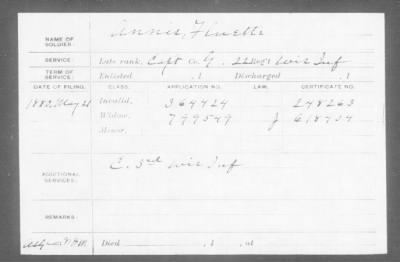 NAME OF SOLDIER: Annis, Fluette
SERVICE: Late rank, Capt Co. G, 22 Reg't Wis Inf
TERM OF SERVICE: Enlisted , 1 Discharged , 1
DATE OF FILING. CLASS. APPLICATION NO. LAW. CERTIFICATE NO.
1880, May Invalid, 364424 248263
Widow, 799549 J 618704
Minor,
ADDITIONAL SERVICES: E. 3rd Wis Inf
REMARKS:
Died , 1 , at